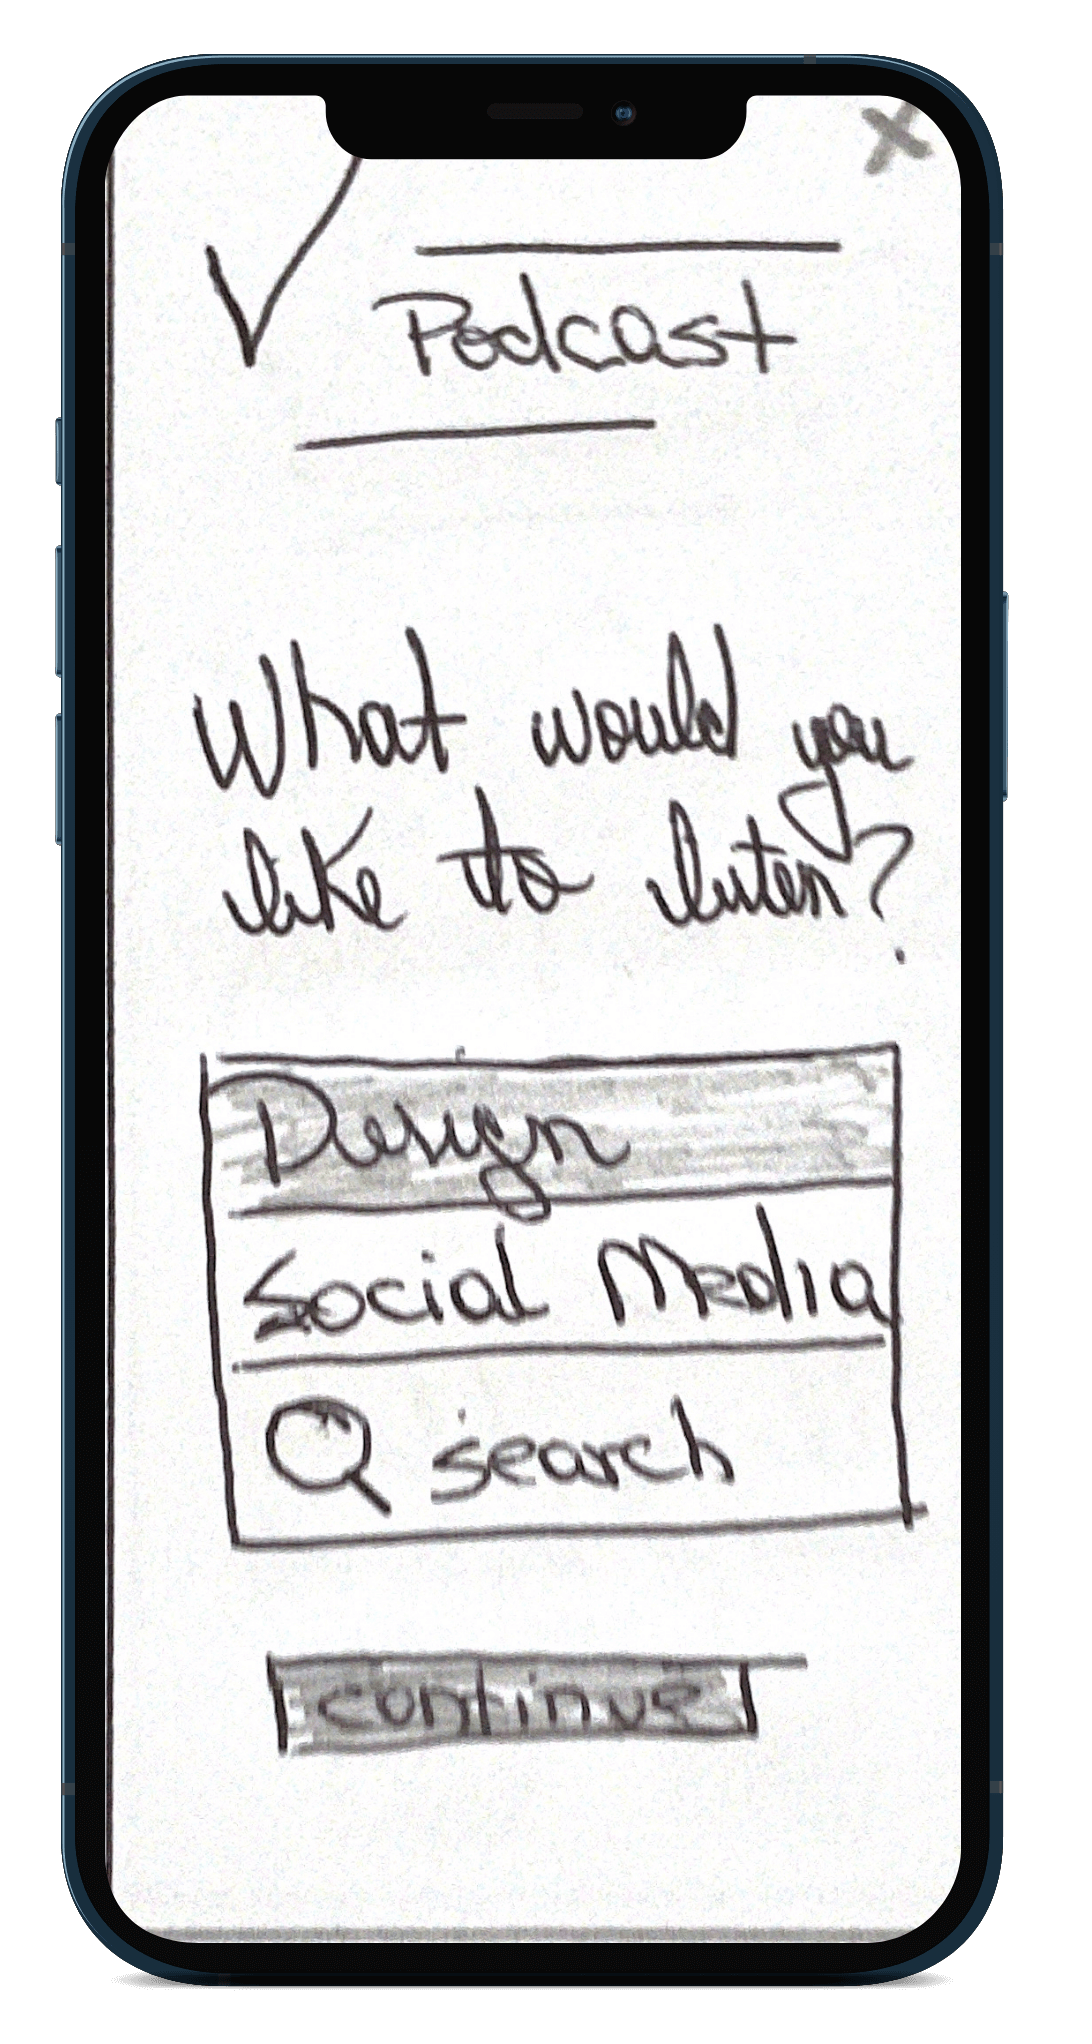 Podcast
What would you
like to listen?
Design
Social Media
search
continue